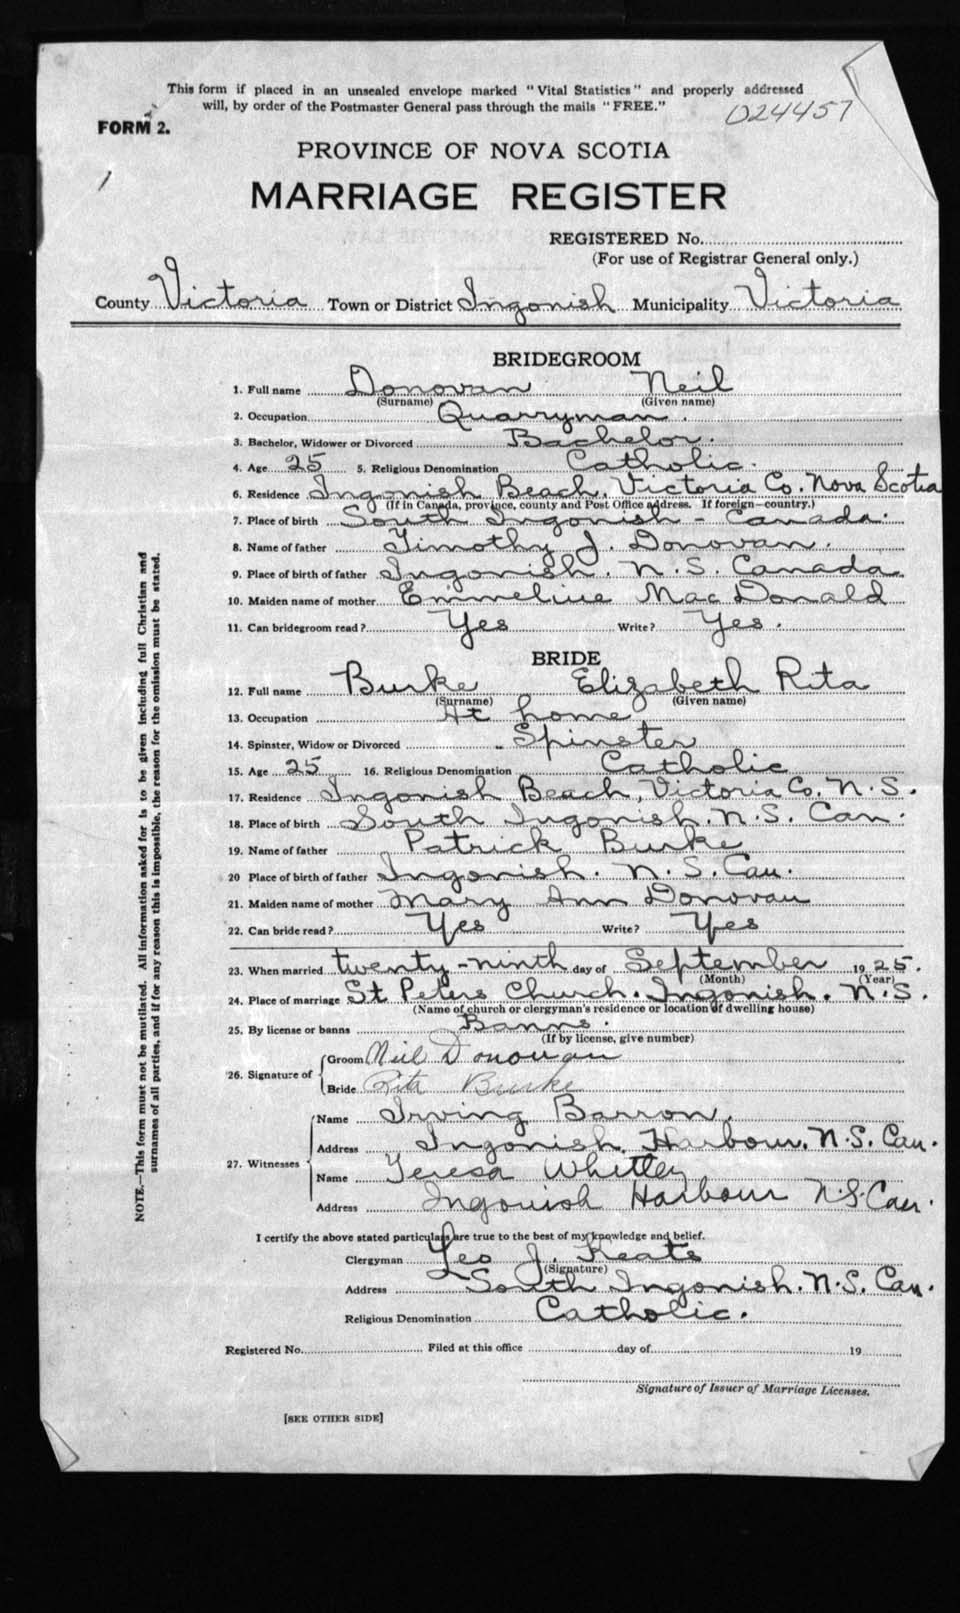 This form if placed in an unsealed envelope marked "Vital Statistics" and properly addressed
will, by order of the Postmaster General pass through the mails "FREE."
024457
FORM 2.
PROVINCE OF NOVA SCOTIA
1
MARRIAGE REGISTER
REGISTERED No.
(For use of Registrar General only.)
County Victoria Town or District Ingonish Municipality Victoria
BRIDEGROOM
1. Full name Donovan Neil
(Surname) (Given name)
2. Occupation Quarryman.
3. Bachelor, Widower or Divorced Bachelor.
4. Age 25 5. Religious Denomination Catholic.
6. Residence Ingonish Beach, Victoria Co. Nova Scotia
(If in Canada, province, county and Post Office address. If foreign—country.)
7. Place of birth South Ingonish - Canada.
8. Name of father Timothy J. Donovan.
9. Place of birth of father Ingonish. N.S. Canada
10. Maiden name of mother Emmeline MacDonald
11. Can bridegroom read? Yes Write? Yes.
BRIDE
12. Full name Burke Elizabeth Rita
(Surname) (Given name)
13. Occupation At home
14. Spinster, Widow or Divorced Spinster
15. Age 25 16. Religious Denomination Catholic
17. Residence Ingonish Beach, Victoria Co. N.S.
18. Place of birth South Ingonish. N.S. Can.
19. Name of father Patrick Burke
20 Place of birth of father Ingonish. N.S. Can.
21. Maiden name of mother Mary Ann Donovan
22. Can bride read? Yes Write? Yes
23. When married twenty-ninth day of September 1925.
(Month) (Year)
24. Place of marriage St Peters Church. Ingonish. N.S.
(Name of church or clergyman's residence or location of dwelling house)
25. By license or banns Banns.
(If by license, give number)
26. Signature of Groom Neil Donovan
Bride Rita Burke
27. Witnesses Name Irving Barron.
Address Ingonish Harbour. N.S. Can.
Name Teresa Whitley
Address Ingonish Harbour N.S. Can.
I certify the above stated particulars are true to the best of my knowledge and belief.
Clergyman Leo J. Keats
(Signature)
Address South Ingonish. N.S. Can.
Religious Denomination Catholic.
Registered No. Filed at this office day of 19
Signature of Issuer of Marriage Licenses.
[SEE OTHER SIDE]
NOTE.—This form must not be mutilated. All information asked for is to be given including full Christian and
surnames of all parties, and if for any reason this is impossible, the reason for the omission must be stated.